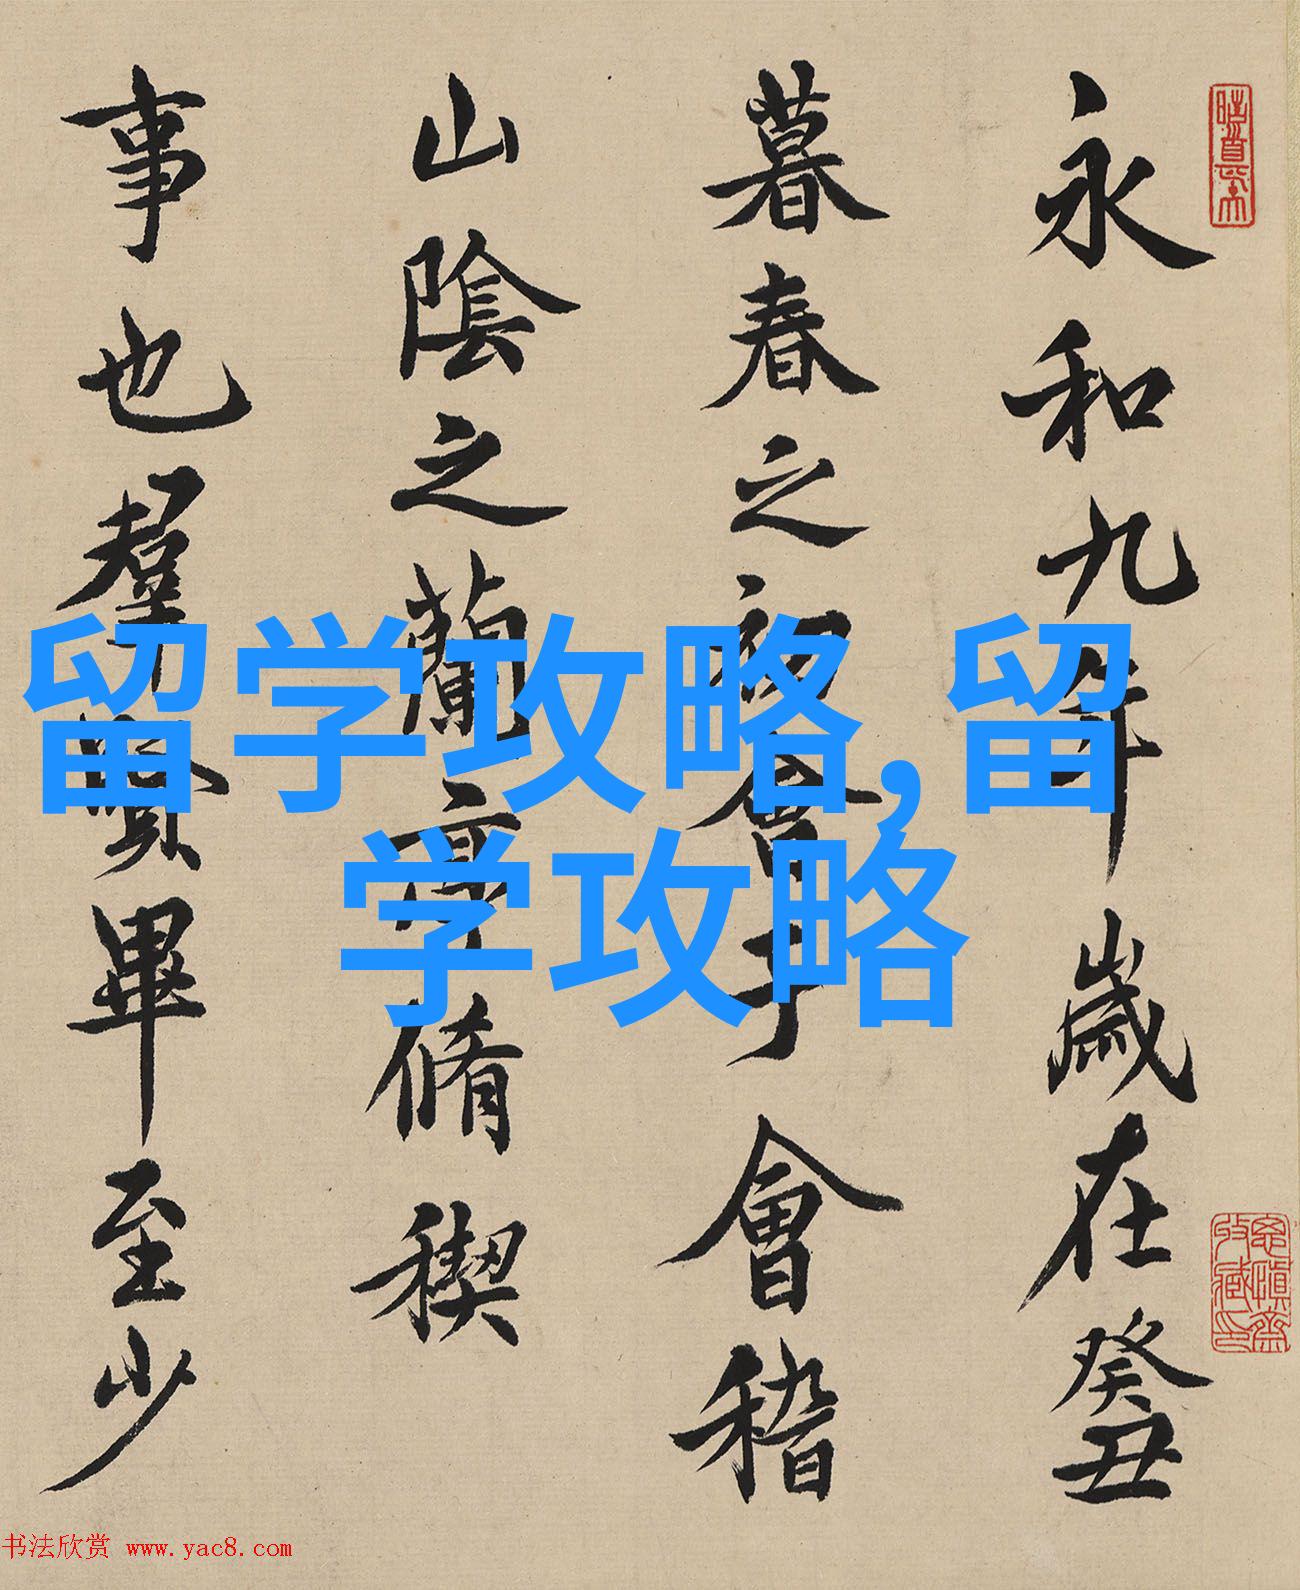 永和九年歲在癸丑
暮春之初會于會稽
山陰之蘭亭脩稧
事也羣賢畢至少
留学攻略,留
学攻略
书法欣赏 www.yac8.com